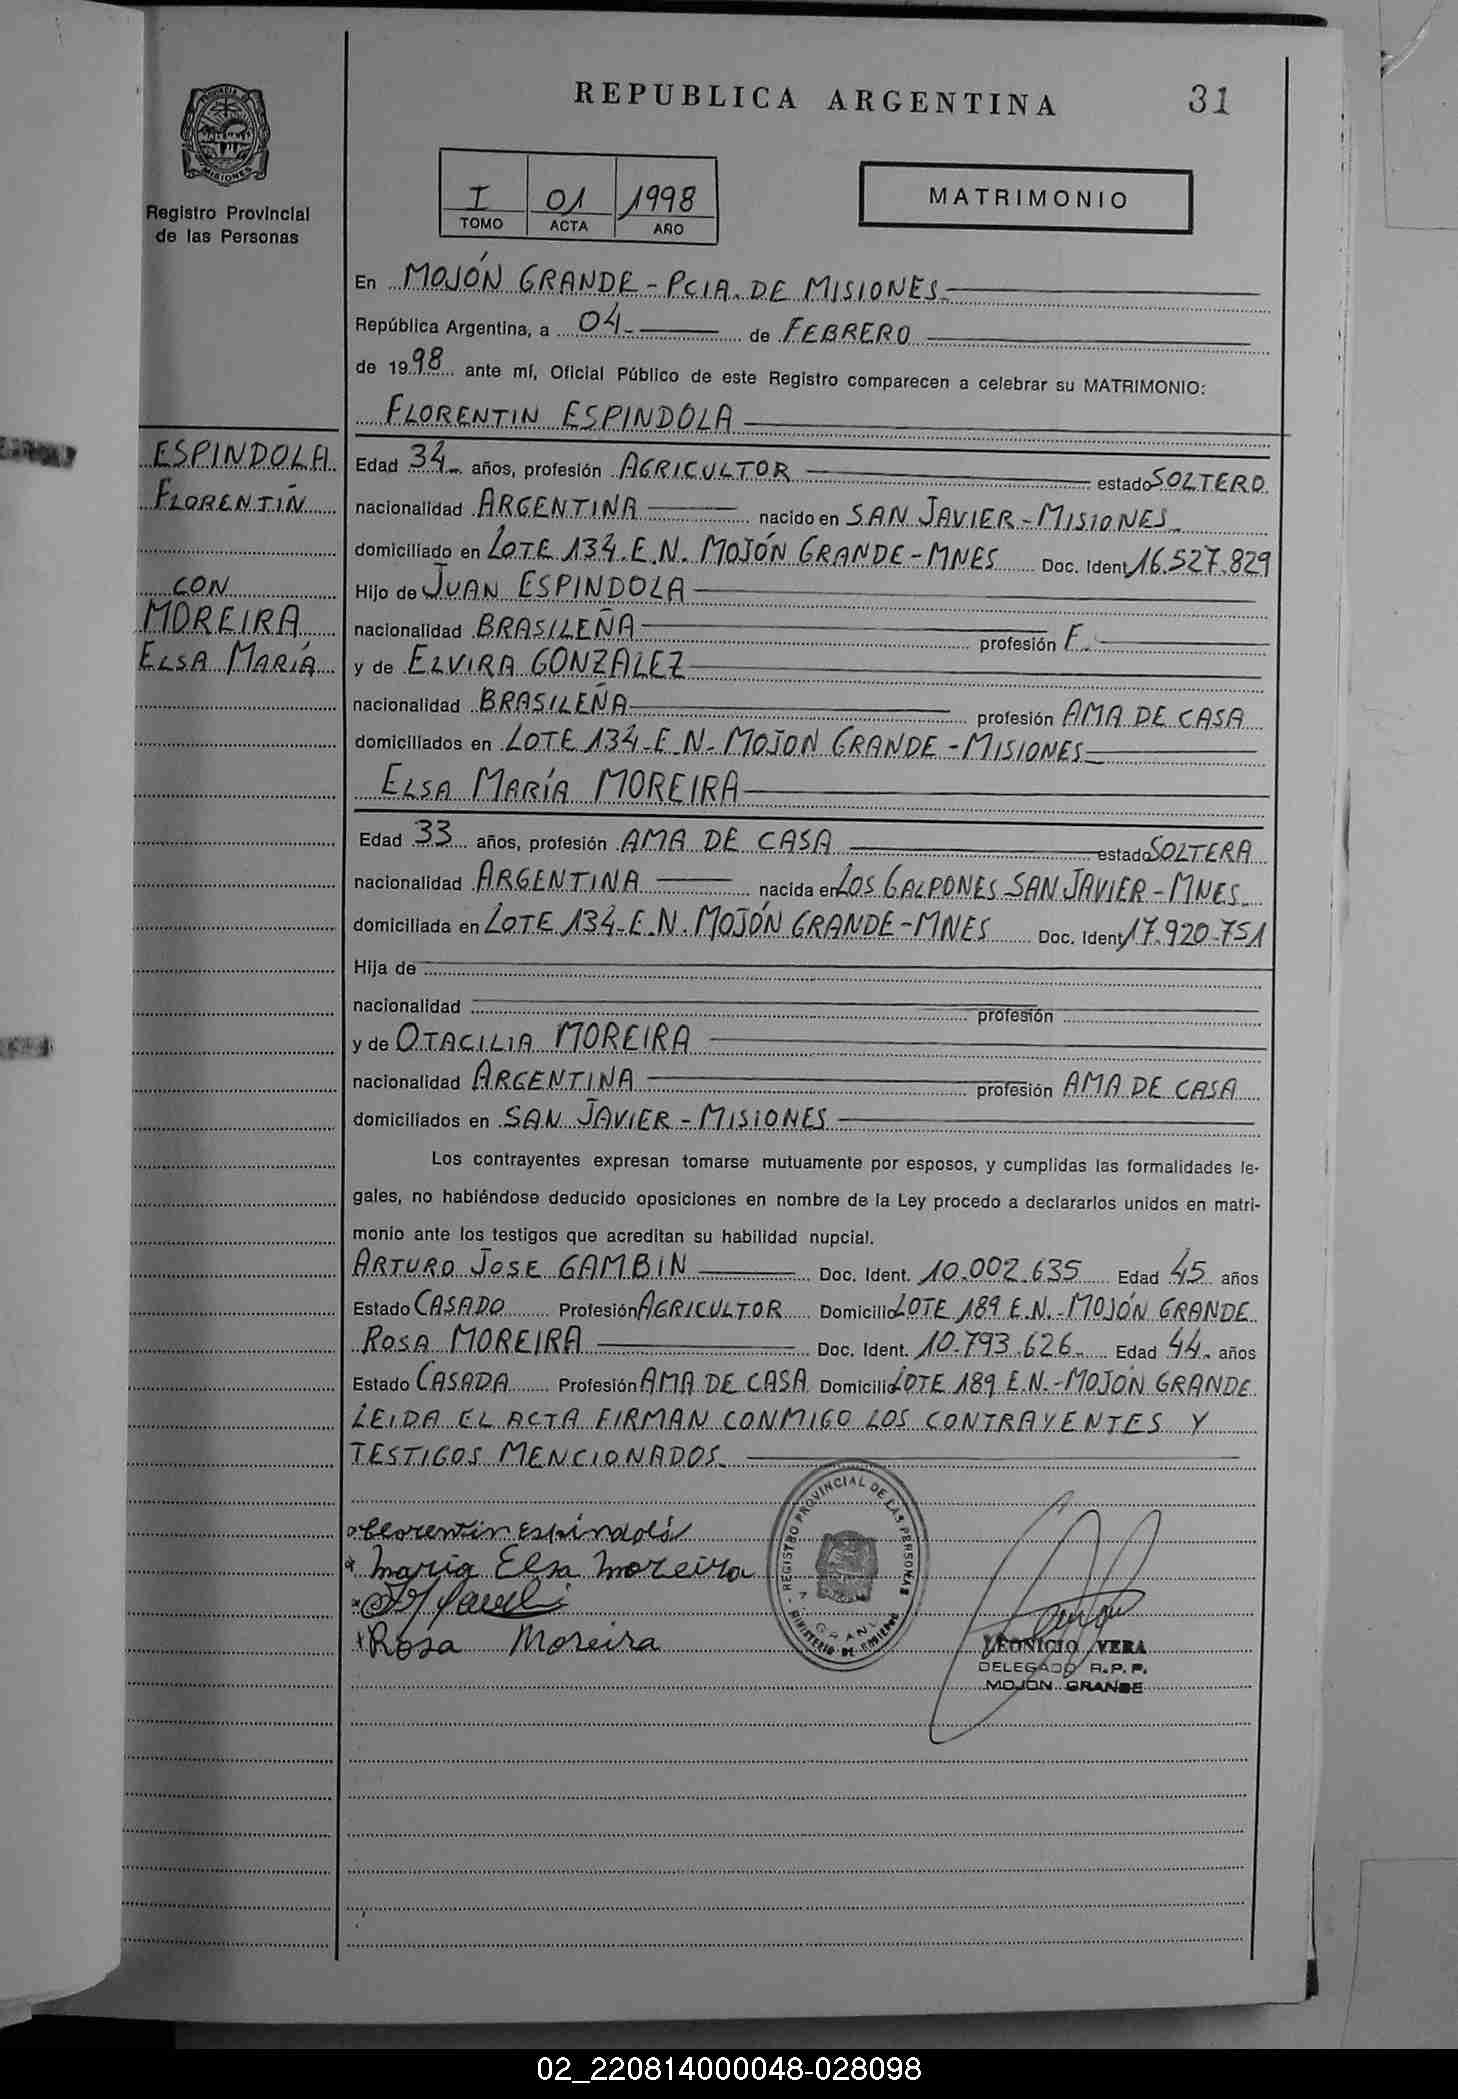 REPUBLICA ARGENTINA
31
PROVINCIA DE MISIONES
Registro Provincial
de las Personas
I 01 1998
TOMO ACTA AÑO
MATRIMONIO
En MOJÓN GRANDE - PCIA. DE MISIONES
República Argentina, a 04 de FEBRERO
de 1998 ante mí, Oficial Público de este Registro comparecen a celebrar su MATRIMONIO:
FLORENTIN ESPINDOLA
ESPINDOLA
FLORENTIN
CON
MOREIRA
ELSA MARÍA
Edad 34 años, profesión AGRICULTOR estado SOLTERO
nacionalidad ARGENTINA nacido en SAN JAVIER - MISIONES
domiciliado en LOTE 134 E.N. MOJÓN GRANDE - MNES Doc. Ident 16.527.829
Hijo de JUAN ESPINDOLA
nacionalidad BRASILEÑA profesión F.
y de ELVIRA GONZALEZ
nacionalidad BRASILEÑA profesión AMA DE CASA
domiciliados en LOTE 134 E.N. MOJON GRANDE - MISIONES
ELSA MARÍA MOREIRA
Edad 33 años, profesión AMA DE CASA estado SOLTERA
nacionalidad ARGENTINA nacida en LOS GALPONES SAN JAVIER - MNES
domiciliada en LOTE 134 E.N. MOJÓN GRANDE - MNES Doc. Ident 17.920.751
Hija de
nacionalidad profesión
y de OTACILIA MOREIRA
nacionalidad ARGENTINA profesión AMA DE CASA
domiciliados en SAN JAVIER - MISIONES
Los contrayentes expresan tomarse mutuamente por esposos, y cumplidas las formalidades le-
gales, no habiéndose deducido oposiciones en nombre de la Ley procedo a declararlos unidos en matri-
monio ante los testigos que acreditan su habilidad nupcial.
ARTURO JOSE GAMBIN Doc. Ident. 10.002.635 Edad 45 años
Estado CASADO Profesión AGRICULTOR Domicilio LOTE 189 E.N. - MOJÓN GRANDE
ROSA MOREIRA Doc. Ident. 10.793.626 Edad 44 años
Estado CASADA Profesión AMA DE CASA Domicilio LOTE 189 E.N. - MOJÓN GRANDE
LEIDA EL ACTA FIRMAN CONMIGO LOS CONTRAYENTES Y
TESTIGOS MENCIONADOS
Florentin Espíndola
Maria Elsa Moreira
Rosa Moreira
REGISTRO PROVINCIAL DE LAS PERSONAS
MINISTERIO DE GOBIERNO
LEONICIO VERA
DELEGADO R.P.P.
MOJON GRANDE
02_220814000048-028098